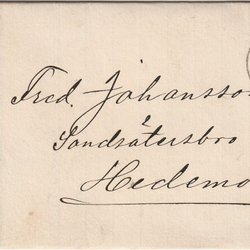 Fred. Johansso
Sandsätersbro
Hedemo